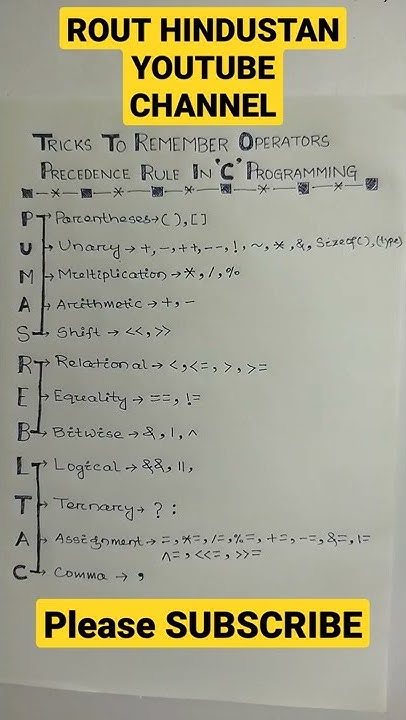 ROUT HINDUSTAN
YOUTUBE
CHANNEL
TRICKS TO REMEMBER OPERATORS
PRECEDENCE RULE IN 'C' PROGRAMMING
P → Parentheses → ( ), [ ]
U → Unary → +, -, ++, --, !, ~, *, &, Sizeof(), (type)
M → Multiplication → *, /, %
A → Arithmetic → +, -
S → Shift → <<, >>
R → Relational → <, <=, >, >=
E → Equality → ==, !=
B → Bitwise → &, |, ^
L → Logical → &&, ||,
T → Ternary → ? :
A → Assignment → =, *=, /=, %=, +=, -=, &=, |=
^=, <<=, >>=
C → Comma → ,
Please SUBSCRIBE